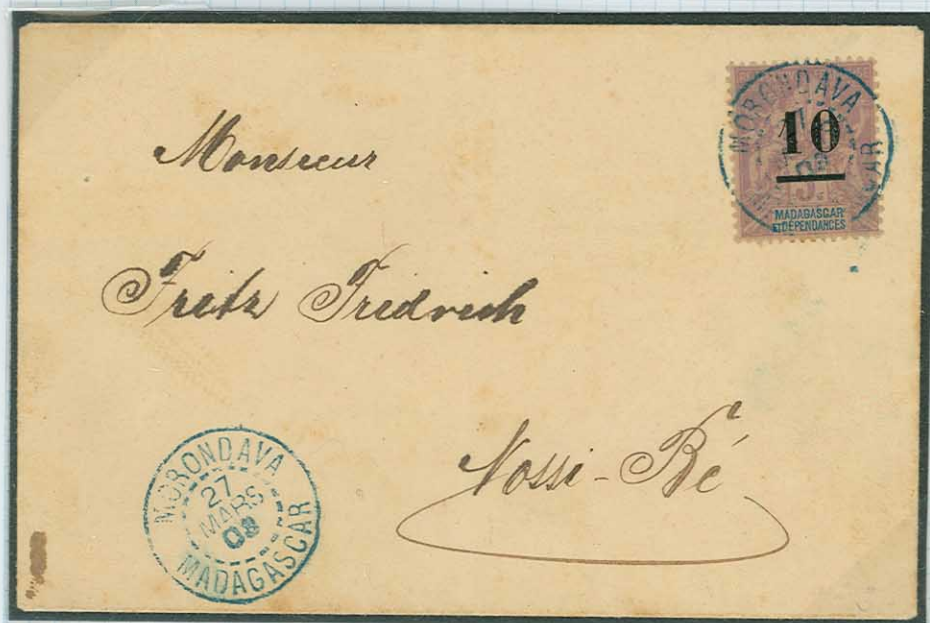 MORONDAVA
10
MADAGASCAR
ET DÉPENDANCES
Monsieur
Fritz Fridrich
Nossi-Bé
MORONDAVA
27
MARS
03
MADAGASCAR